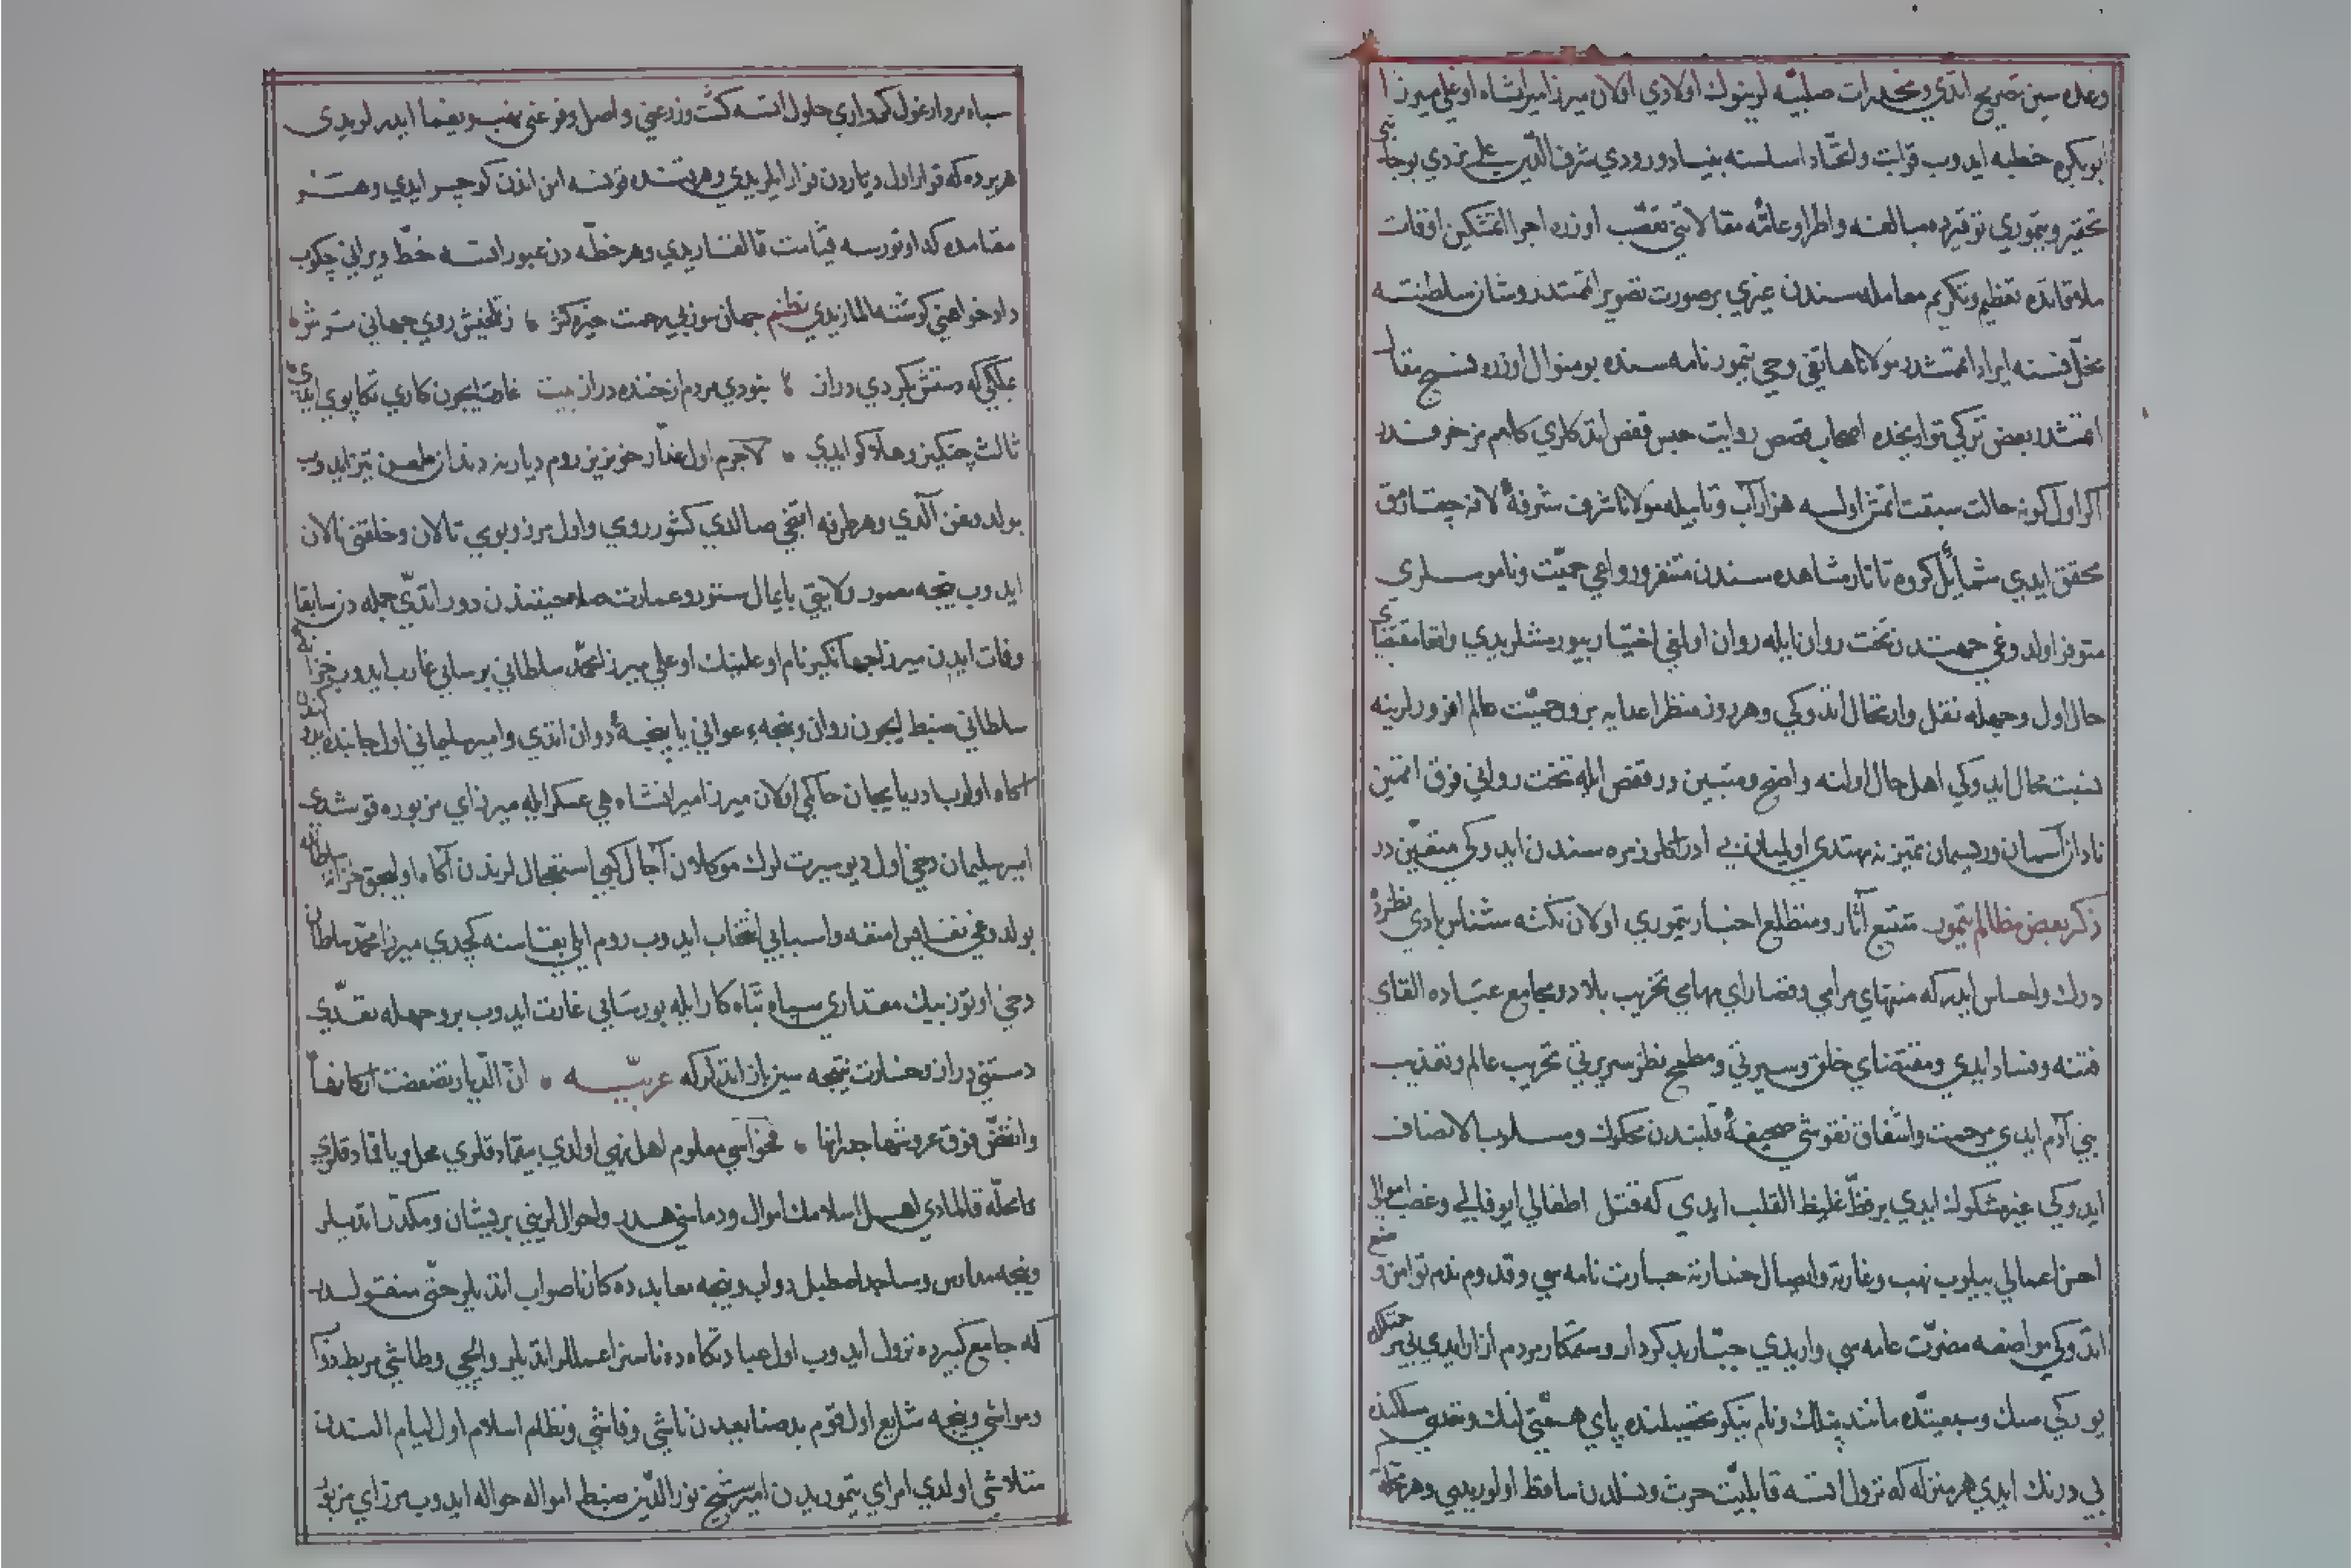 وعده سين تصريح اتدي ومخدرات صلبيّه لرينوك اولادي اولان ميرزا ميرانشاه اوغلي ميرزا
ابو بكره خطبه ايدوب قرابت واتحاد اساسنه بنياد ورودي شرف الدّين علي يزدي بوجا
تحقير وتيموري توقيرده مبالغه واطرا وعامّه مقالاتي تعصّب اوزره اجرا اتمشكين اوقات
ملاقاتده تعظيم وتكريم معامله سندن غيري بر صورت تصوير اتممشدر وشان سلطنته
مخلّ نسنه ايراد اتممشدر مولانا هاتفي دخي تيمور نامه سنده بو منوال اوزره نسج مقال
اتمشدر بعض تركي تواريخده اصحاب قصص روايت حبس قفص اتدكلري كلام مزخرفدر
اكر اول كونه حالت سبقت اتمش اولسه هزار آب وتابيله مولانا شرف شرفهٔ لافه چيقارمق
محقق ايدي شمائل كروه تاتار مشاهده سندن متنفر ودواعي حميّت وناموسلري
متوفر اولدوغي جهتدن تخت روان ايله روان اولغي اختيار بيورمشلريدي واقعا مقتضاي
حال اول وجهله نقل وارتحال اتدوكي وهر روز منظر اعدايه بر وحميّت عالم افروزلرينه
نسبت محال ايدوكي اهل حال اولنه واضح ومتبين در قفص ايله تخت رواني فرق اتمين
نادان آسمان وريسمان تميزنه مهتدي اوليان بي ادراكلر زمره سندن ايدوكي متعيّن در
ذكر بعض مظالم تيمور متتبع آثار ومتطلع اخبار تيموري اولان نكته شناس بادي نظرده
درك واحساس ايدر كه منتهاي مرامي وقصاراي مهامي تخريب بلاد ومجامع عباده القاي
فتنه وفساد ايدي ومقتضاي خلق وسيرتي ومطمح نظر سريرتي تخريب عالم وتعذيب
بني آدم ايدي مرحمت واشفاق نقوشي صحيفهٔ قلبندن محكوك ومسلوب الانصاف
ايدوكي غير مشكوك ايدي بر فظّ غليظ القلب ايدي كه قتل اطفالي ايو فالي وغصب اموالي
احسن اعمالي بيلوب نهب وغارته وايصال خسارته جسارت نامه سي وقدوم ندم توامن
اتدوكي مواضعه مضرّت عامه سي واريدي جبّار بد كردار وستمكار مردم آزار ايدي
يوركي سنك وسبعيتده مانند پلنك ونام نيكو تحصيلنده پاي همّتي لنك
بي درنك ايدي هر منزله كه نزول اتسه قابليّت حرث ونسلدن ساقط اولوريدي وهر
سپاه مردار غول كرداري حلول اتسه كشت وزرعني واصل وفرعني نهب ويغما ايدرلريدي
هر يرده كه قرار اول دياردن فرار ايلريدي
مقامده كه اوتورسه قيامت قالقاريدي وهر خطّه دن عبور اتسه خطّ ويراني چكوب
داد خواهني كوشنه المازيدي نظم جهان سوز بي رحمت خيره كش ۰ ز تلخيش روي جهاني ترش
بملكي كه دستش بكردي دراز ۰ نبودي مردم از خنده دراز بيت غارت ايچون كاري تكاپوي ايدي
ثالث چنكيز وهلاكو ايدي ۰ لاجرم اول غدّار خونريز روم ديارينه دندان طمعن تيز ايدوب
بولدوغن آلدي وهر طرفه اتيغي صالدي كشور روي واول مرز وبومي تالان وخلقني نالان
ايدوب نيجه معمور ولايتي پايمال ستور وعمارت صلاحيتندن دور اتدّي جمله دن سابقا
وفات ايدن ميرزا جهانكير نام اوغلينك اوغلي ميرزا محمّد سلطاني برسايي غارت ايدوب خزائن
سلطاني ضبط ايچون روان ونيجه عواني يا پنجهٔ دوان اتدي وامير سليماني اول جانبده
آكاه اولوب اذربايجان حاكمي اولان ميرزا ميرانشاه هم عسكر ايله ميرزاي مزبوره قوشدي
امير سليمان دخي اول ديو سيرت لرك موكلادن آجال كبي استعجال لرندن آكاه اوليجق خزائن سلطاني
بولدوغي نفايس امتعه واسبابي انتخاب ايدوب روم ايلي يقاسنه كچدي ميرزا محمّد سلطان
دخي اوتوز بيك مقداري سپاه تباه كار ايله بورسايي غارت ايدوب بر وجهله تعدّي
دستني دراز وخسارت نتيجه سيز باز اتديلر كه عربيّه ۰ انّ الديار تضعضعت اركانها
وانقضّ فوق عروشها جدرانها ۰ فحواسي معلوم اهل نهي اولدي
نامحلّه قالمادي اهل اسلامك اموال ودماسني هدر واحوال لريني پريشان ومكدّر اتديلر
ونيجه مدارس ومساجد اصطبل دواب ونيجه معابدده كار ناصواب اتديلر حتّي منقولدر
كه جامع كبيره نزول ايدوب اول عبادتكاهده ناسزا عمللر اتديلر وايچي وطاشي مربط دواب
ومواشي ونيجه شنايع اول قوم بد صنايعدن ناشي وفاشي ونظام اسلام اول ليام الندن
متلاشي اولدي امراي تيموريدن امير شيخ نور الدّين ضبط امواله حواله ايدوب ميرزاي مزبور